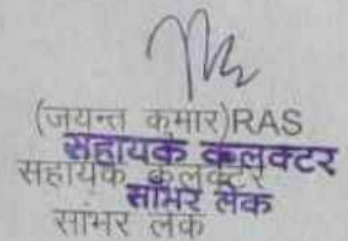 (जयन्त कुमार)RAS
सहायक कलक्टर
सहायक कलक्टर
सांभर लेक
सांभर लेक